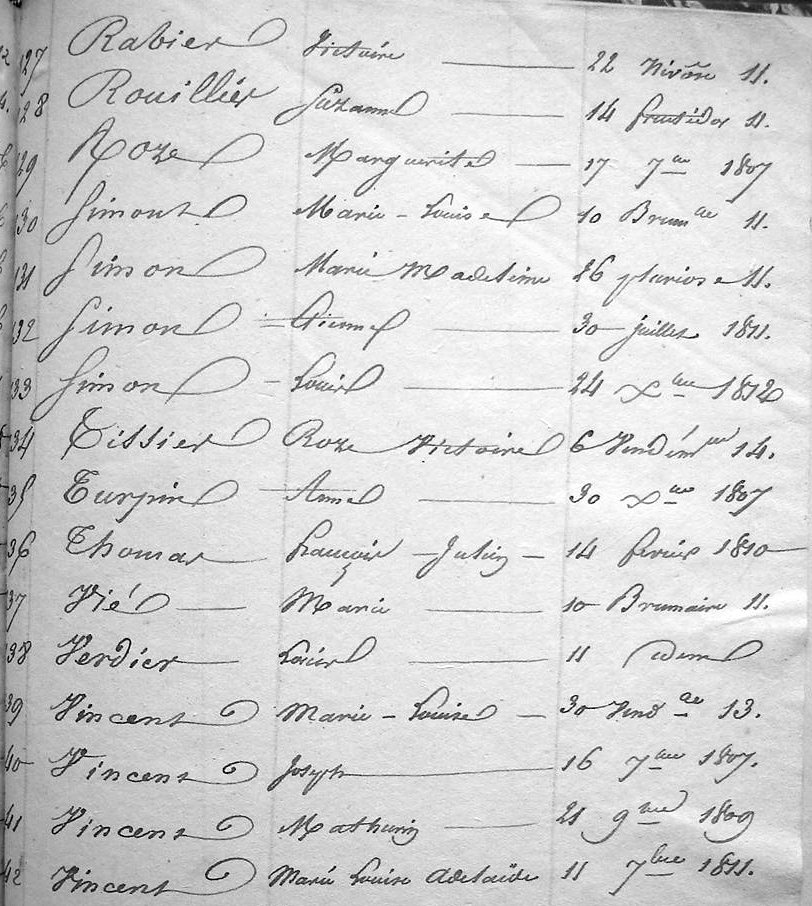 127 Rabier Victoire 22 Nivôse 11.
128 Rouillier Suzanne 14 fructidor 11.
129 Roze Marguerite 17 7bre 1807
130 Simont Marie-Louise 10 Brumre 11.
131 Simon Marie Madeleine 26 pluviose 11.
132 Simon Etienne 30 juillet 1811.
133 Simon Louis 24 Xbre 1812
134 Tissier Roze Victoire 6 Vendémre 14.
135 Turpin Anne 30 Xbre 1807
136 Thomas François-Julien 14 fevrier 1810
137 Vié Marie 10 Brumaire 11.
138 Verdier Louis 11 idem
139 Vincent Marie-Louise 30 Vendre 13.
140 Vincent Joseph 16 7bre 1807.
141 Vincent Mathurin 21 9bre 1809
142 Vincent Marie Louise Adelaïde 11 7bre 1811.